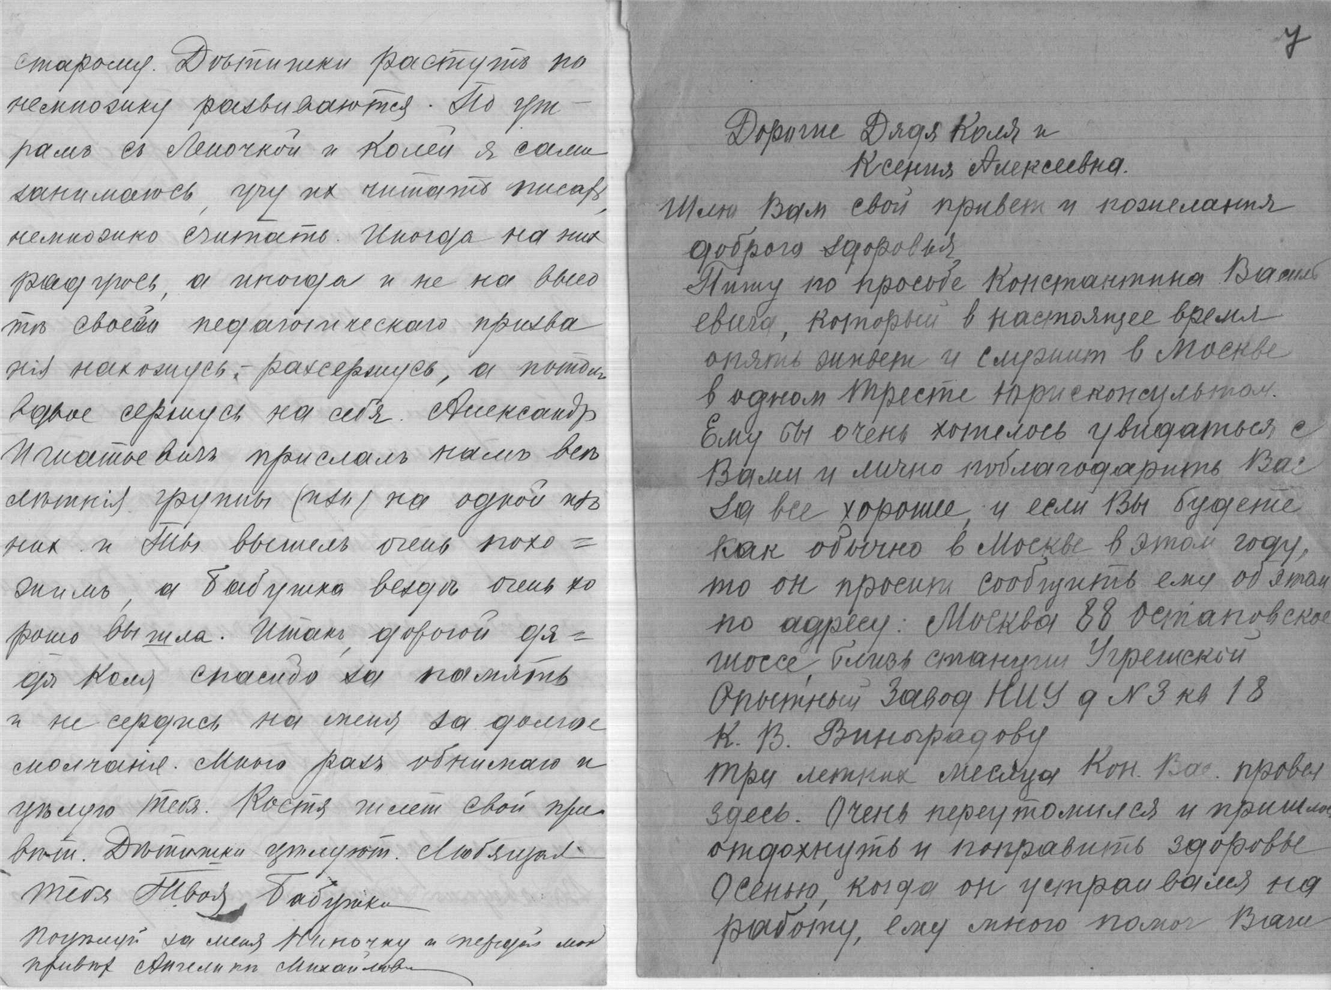 старому. Дѣтишки растутъ по
немножку развиваются. По ут-
рамъ съ Леночкой и Колей я сама
занимаюсь, учу их читать писать,
немножко считать. Иногда на них
радуюсь, а иногда и не на высо
тѣ своего педагогическаго призва
нія нахожусь,- разсержусь, а потомъ
вдвое сержусь на себя. Александр
Игнатьевичъ прислалъ намъ всѣ
лѣтнія группы на одной изъ
них и Ты вышелъ очень похо=
жимъ, а Бабушка вездѣ очень хо
рошо вышла. Итакъ, дорогой дя=
дя Коля спасибо за память
и не сердись на меня за долгое
молчаніе. Много разъ обнимаю и
цѣлую Тебя. Костя шлет свой при
вѣт. Дѣтишки цѣлуют. Любящая
Тебя Твоя Бабушка
Поцѣлуй за меня Ниночку и передай мой
привѣт Ангелинѣ Михайловнѣ
Дорогие Дядя Коля и
Ксения Алексеевна.
Шлю Вам свой привет и пожелания
доброго здоровья
Пишу по прособе Константина Василь
евича, который в настоящее время
опять живет и служит в Москве
в одном тресте юрисконсультом.
Ему бы очень хотелось увидаться с
Вами и лично поблагодарить Вас
за все хорошее, и если Вы будете
как обычно в Москве в этом году,
то он просит сообщить ему об этом
по адресу: Москва 88 Остаповское
шоссе, близь станции Угрешской
Опытный Завод НИУ д N 3 кв 18
К. В. Виноградову
Три летних месяца Кон. Вас. провел
здесь. Очень переутомился и пришлось
отдохнуть и поправить здоровье
Осенью, когда он устраивался на
работу, ему много помог Ваш